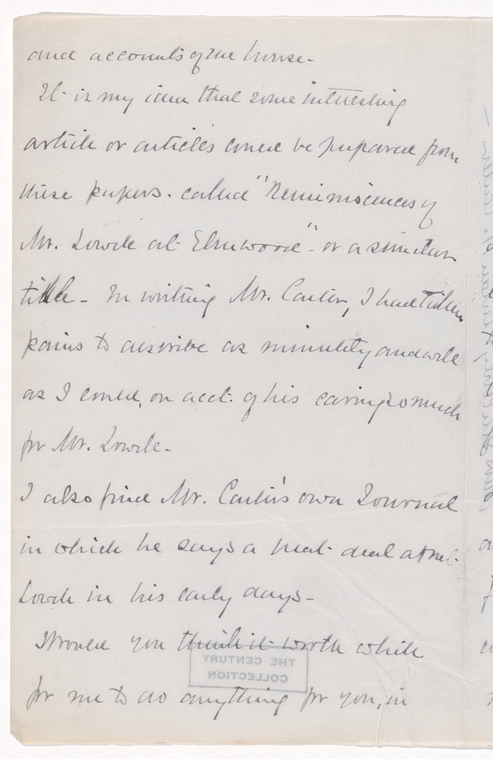 and accounts of the house.
It is my idea that some interesting
article or articles could be prepared from
these papers. called "Reminiscences of
Mr. Lowell at Elmwood" - or a similar
title - In writing Mr. Carter, I had taken
pains to describe as minutely and well
as I could, on acct. of his caring so much
for Mr. Lowell -
I also find Mr. Carter's own Journal
in which he says a great deal about Mr.
Lowell in his early days -
Would you think it worth while
THE CENTURY
COLLECTION
for me to do anything for you, in